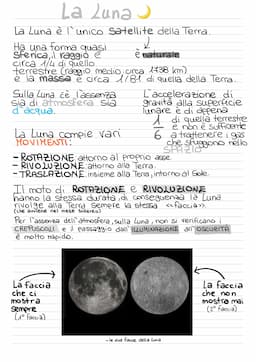 La Luna
La Luna è l'unico satellite della Terra.
Ha una forma quasi
sferica, il raggio è
circa 1/4 di quello
terrestre (raggio medio circa 1738 km)
e la massa è circa 1/81 di quella della Terra.
è naturale
Sulla Luna c'è l'assenza
sia di atmosfera sia
d'acqua.
L'accelerazione di
gravità alla superficie
lunare è di appena
1/6 di quella terrestre
e non è sufficiente
a trattenere i gas
che sfuggono nello
SPAZIO
La Luna compie vari
MOVIMENTI:
- ROTAZIONE attorno al proprio asse.
- RIVOLUZIONE attorno alla Terra.
- TRASLAZIONE insieme alla Terra, intorno al Sole.
Il moto di ROTAZIONE e RIVOLUZIONE
hanno la stessa durata, di conseguenza la Luna
rivolge alla Terra sempre la stessa <<faccia>>.
(che avviene nel mese sidereo)
Per l'assenza dell'atmosfera, sulla Luna, non si verificano i
CREPUSCOLI e il passaggio dall'ILLUMINAZIONE all'OSCURITÀ
è molto rapido.
La faccia
che ci
mostra
sempre
(1ª faccia)
La faccia
che non
mostra mai
(2ª faccia)
~ le due facce della Luna